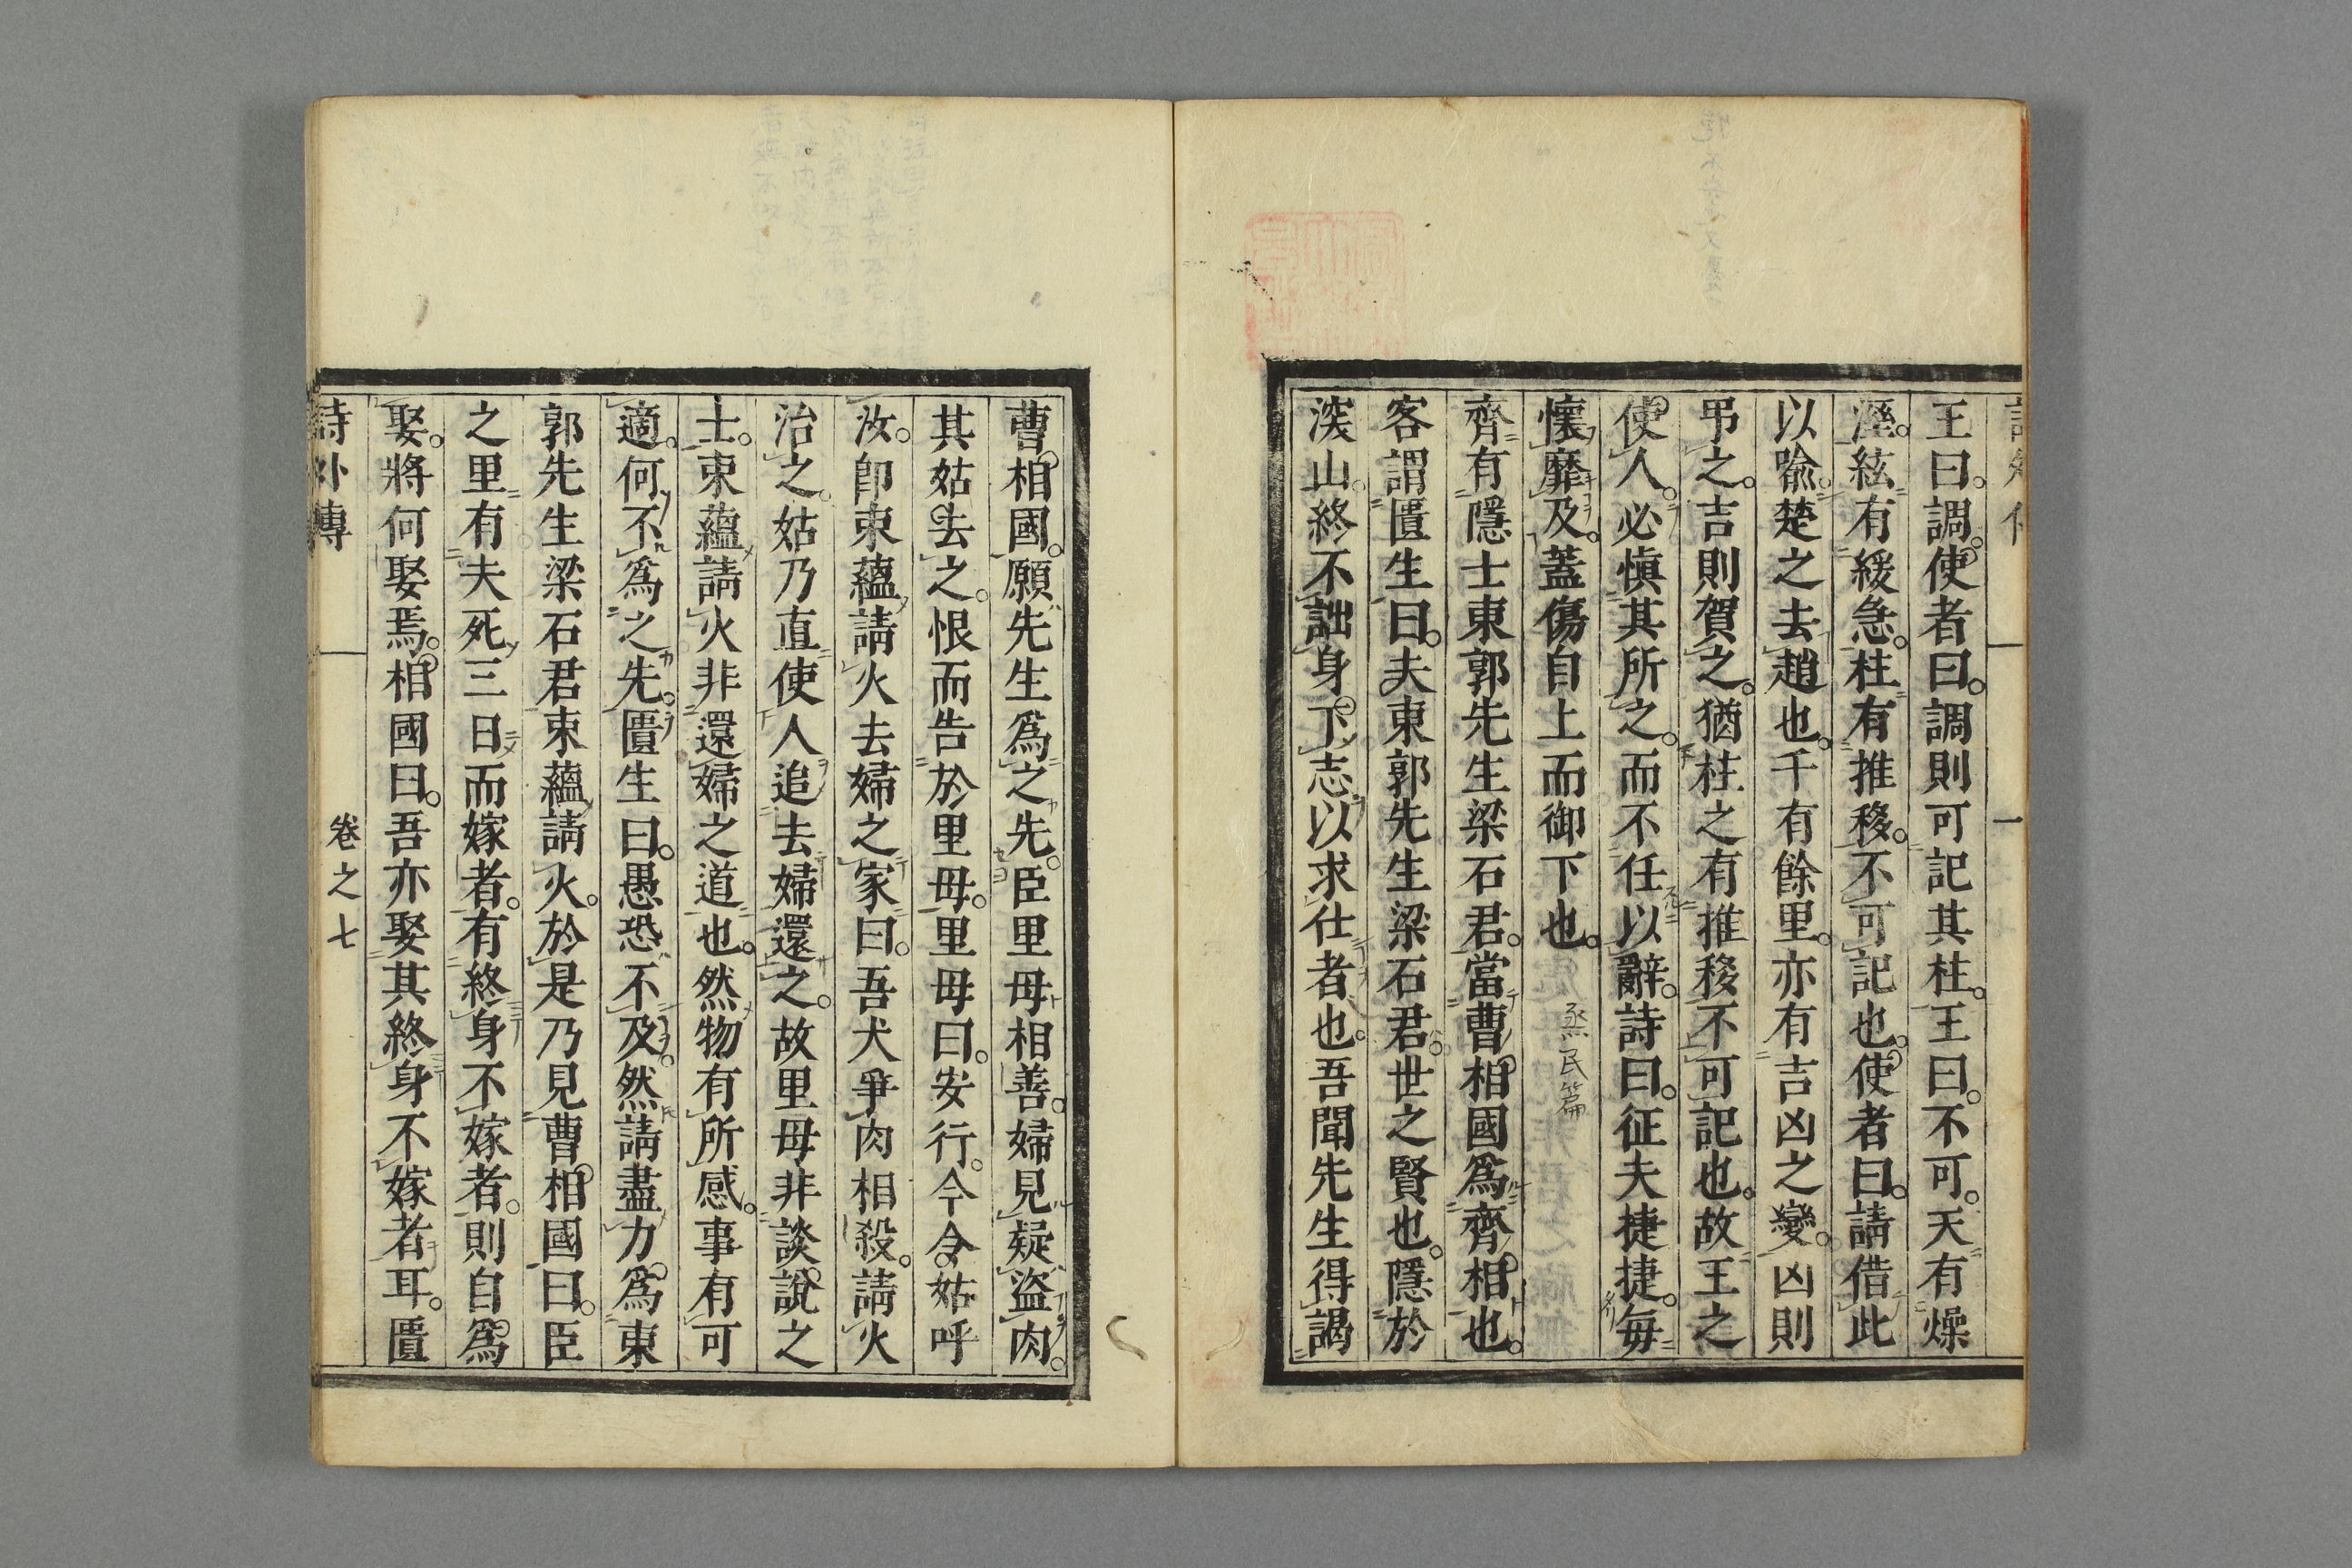 王曰調使者曰調則可記其柱王曰不可天有燥
溼絃有緩急柱有推移不可記也使者曰請借此
以喩楚之去趙也千有餘里亦有吉凶之變凶則
弔之吉則賀之猶柱之有推移不可記也故王之
使人必愼其所之而不任以辭詩曰征夫捷捷每
懷靡及蓋傷自上而御下也 烝民篇
齊有隱士東郭先生梁石君當曹相國爲齊相也
客謂匱生曰夫東郭先生梁石君世之賢也隱於
深山終不詘身下志以求仕者也吾聞先生得謁
曹相國願先生爲之先臣里母相善婦見疑盜肉
其姑去之恨而告於里母里母曰安行今令姑呼
汝卽束蘊請火去婦之家曰吾犬爭肉相殺請火
治之姑乃直使人追去婦還之故里母非談說之
士束蘊請火非還婦之道也然物有所感事有可
適何不爲之先匱生曰愚恐不及然請盡力爲東
郭先生梁石君束蘊請火於是乃見曹相國曰臣
之里有夫死三日而嫁者有終身不嫁者則自爲
娶將何娶焉相國曰吾亦娶其終身不嫁者耳匱
詩外傳 卷之七